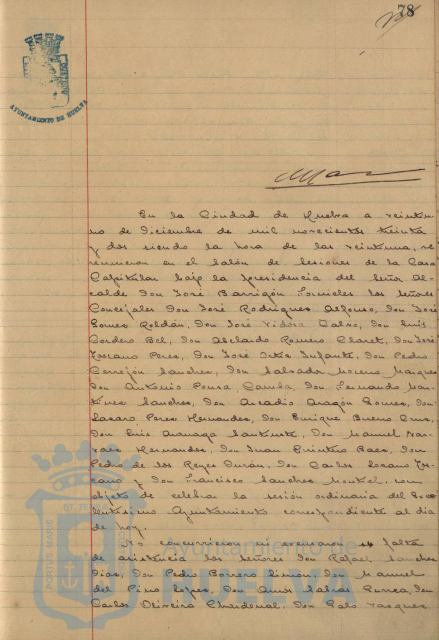 78
AYUNTAMIENTO DE HUELVA
En la Ciudad de Huelva a veintiu
no de Diciembre de mil novecientos treinta
y dos siendo la hora de las veintiuna, se
reunieron en el Salón de Sesiones de la Casa
Capitular bajo la presidencia del Señor Al-
calde Don José Barrigón Fornieles los señores
Concejales Don José Rodríguez Alfonso, Don José
Gomez Roldán, Don José Vidosa Calvo, Don Luis
Cordero Bel, Don Abelardo Romero Claret, Don José
Toscano Perez, Don José Infante, Don Pedro
Cerrejón Sanchez, Don Salvador Moreno Marquez
Don Antonio Pousa Camba, Don Fernando Mar-
tínez Sanchez, Don Arcadio Aragón Gomez, Don
Lazaro Perez Hernandez, Don Enrique Bueno Cruz,
Don Luis Don Manuel Nar-
vaez Hernandez, Don Juan Quintero Baez, Don
Pedro de los Reyes Durán, Don Carlos Lozano Tos-
cano y Don Francisco Sanchez con
objeto de celebrar la sesión ordinaria del Exce
lentísimo Ayuntamiento correspondiente al dia
de hoy.
No concurrieron ni excusaron su falta
de asistencia los señores Don Rafael Sanchez
Diaz, Don Pedro Borrero Limon, Don Manuel
del Pino Lopez, Don Amos Sabras Gurrea, Don
Carlos Oliveira Chardenal, Don Pablo Vazquez
Ayuntamiento de
HUELVA
PORTUS MARIS